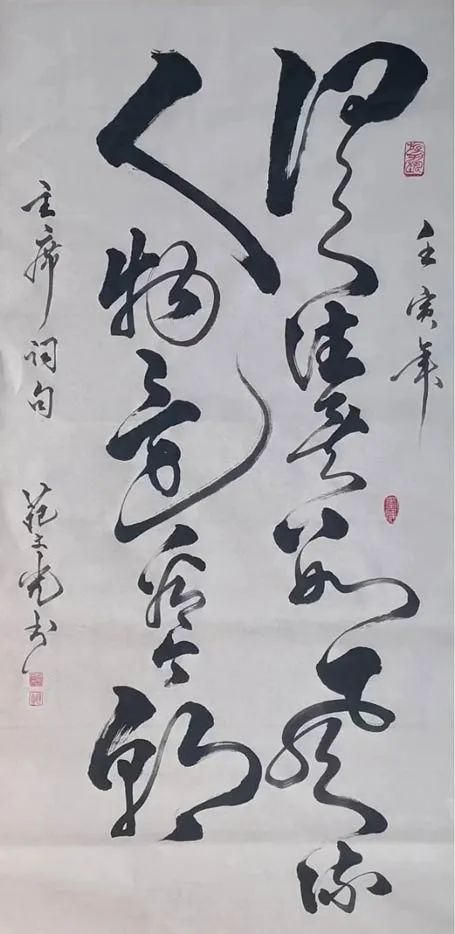 壬寅年
俱往矣数风流
人物还看今朝
主席词句 范文光书